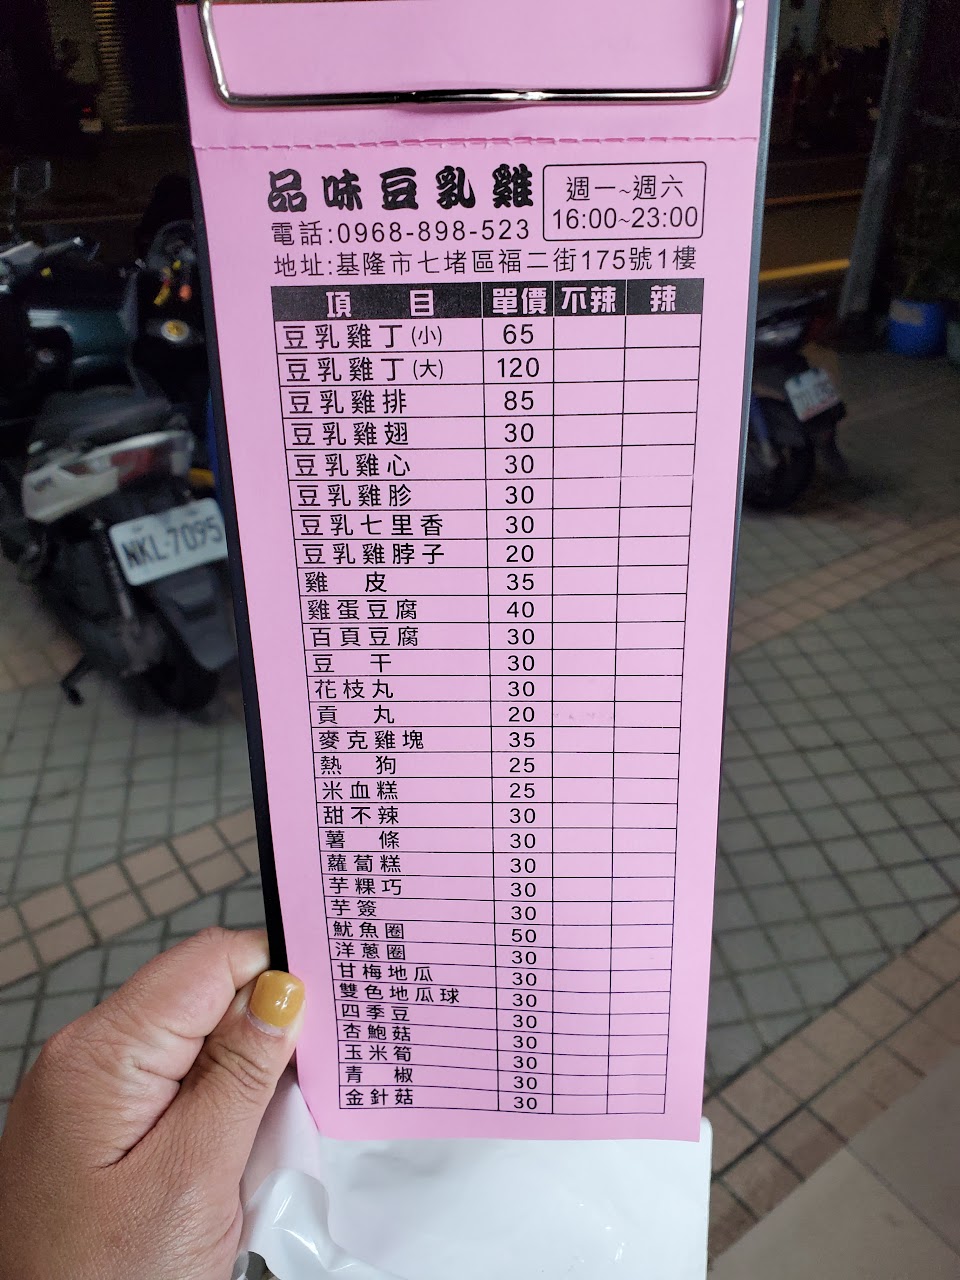 品味豆乳雞
週一~週六
16:00~23:00
電話:0968-898-523
地址:基隆市七堵區福二街175號1樓
項目 單價 不辣 辣
豆乳雞丁(小) 65
豆乳雞丁(大) 120
豆乳雞排 85
豆乳雞翅 30
豆乳雞心 30
豆乳雞胗 30
豆乳七里香 30
豆乳雞脖子 20
雞皮 35
雞蛋豆腐 40
百頁豆腐 30
豆干 30
花枝丸 30
貢丸 20
麥克雞塊 35
熱狗 25
米血糕 25
甜不辣 30
薯條 30
蘿蔔糕 30
芋粿巧 30
芋簽 30
魷魚圈 50
洋蔥圈 30
甘梅地瓜 30
雙色地瓜球 30
四季豆 30
杏鮑菇 30
玉米筍 30
青椒 30
金針菇 30
NKL-7095